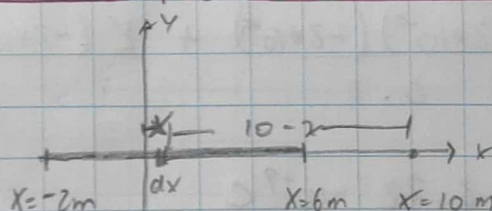 Y
x 10-x
X
dx
X=-2m X=6m X=10 m